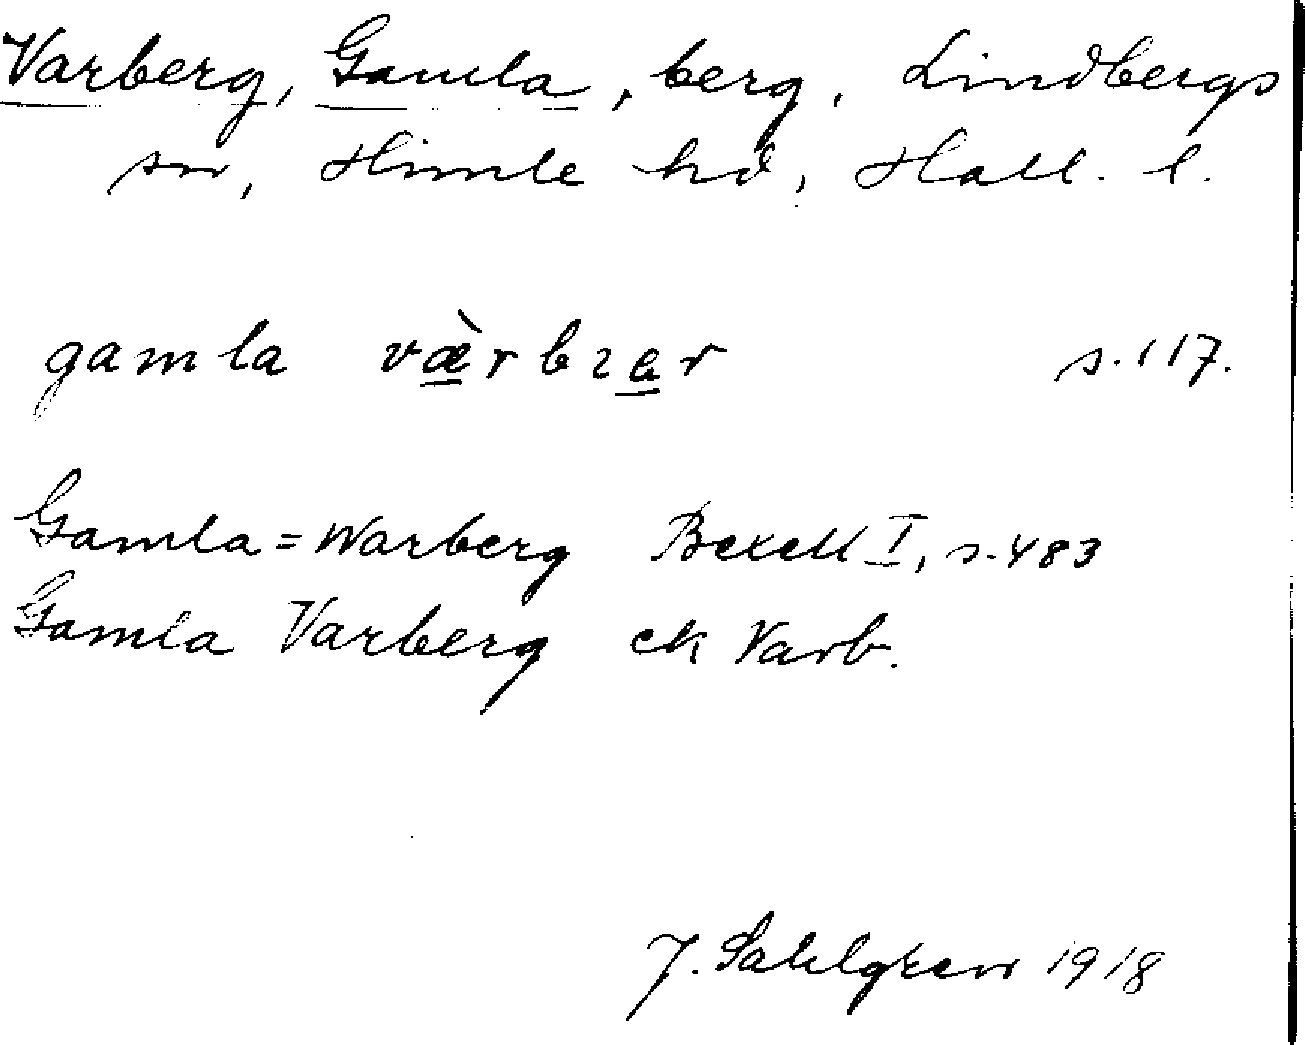 Varberg, Gamla, berg, Lindbergs
sn, Himle hd, Hall. l.
gamla væ̀rbzar s. 117.
Gamla=Warberg Bexell I, s. 483
Gamla Varberg ek Varb.
J. Sahlgren 1918